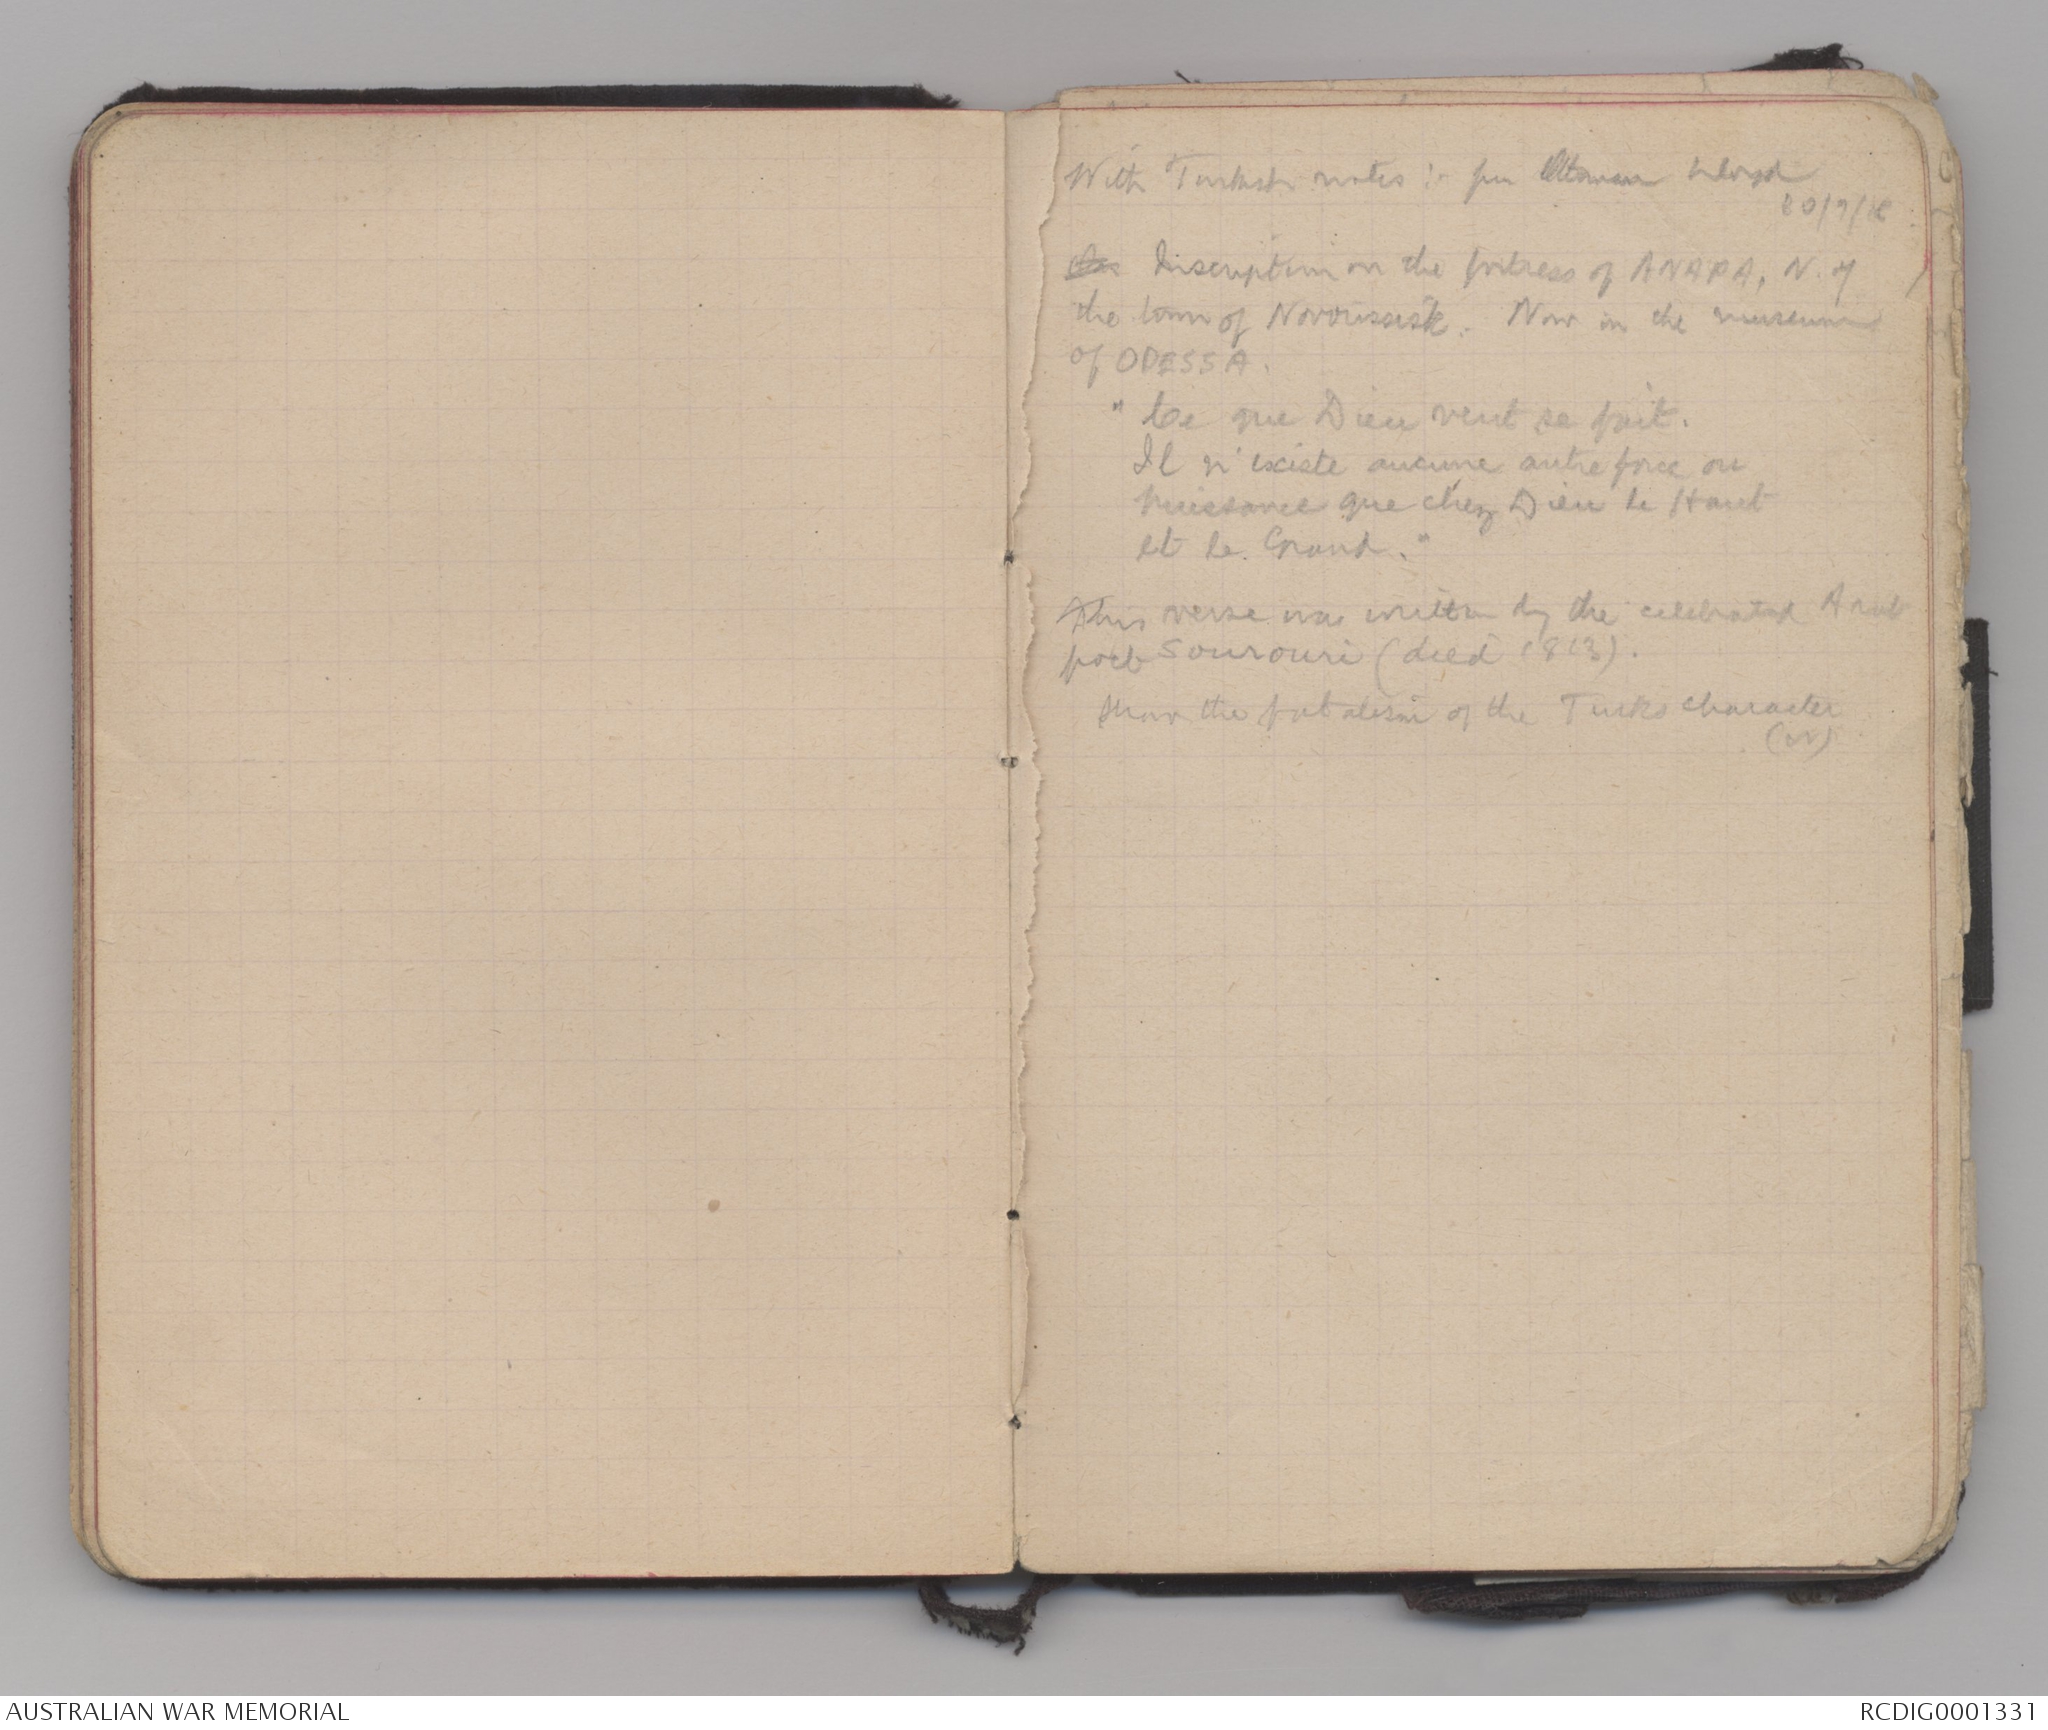 With Turkish notes :- per Ottoman Lloyd
/9/18
Inscription on the fortress of ANAPA, N. of
the town of Novorissisk. Now in the museum
of ODESSA.
" Ce que Dieu veut se fait.
Il n'existe aucune autre force ou
puissance que chez Dieu le Haut
et le Grand. "
This verse was written by the celebrated Arab
poet Sourouri (died 1813).
Show the fatalism of the Turks character
AUSTRALIAN WAR MEMORIAL
RCDIG0001331